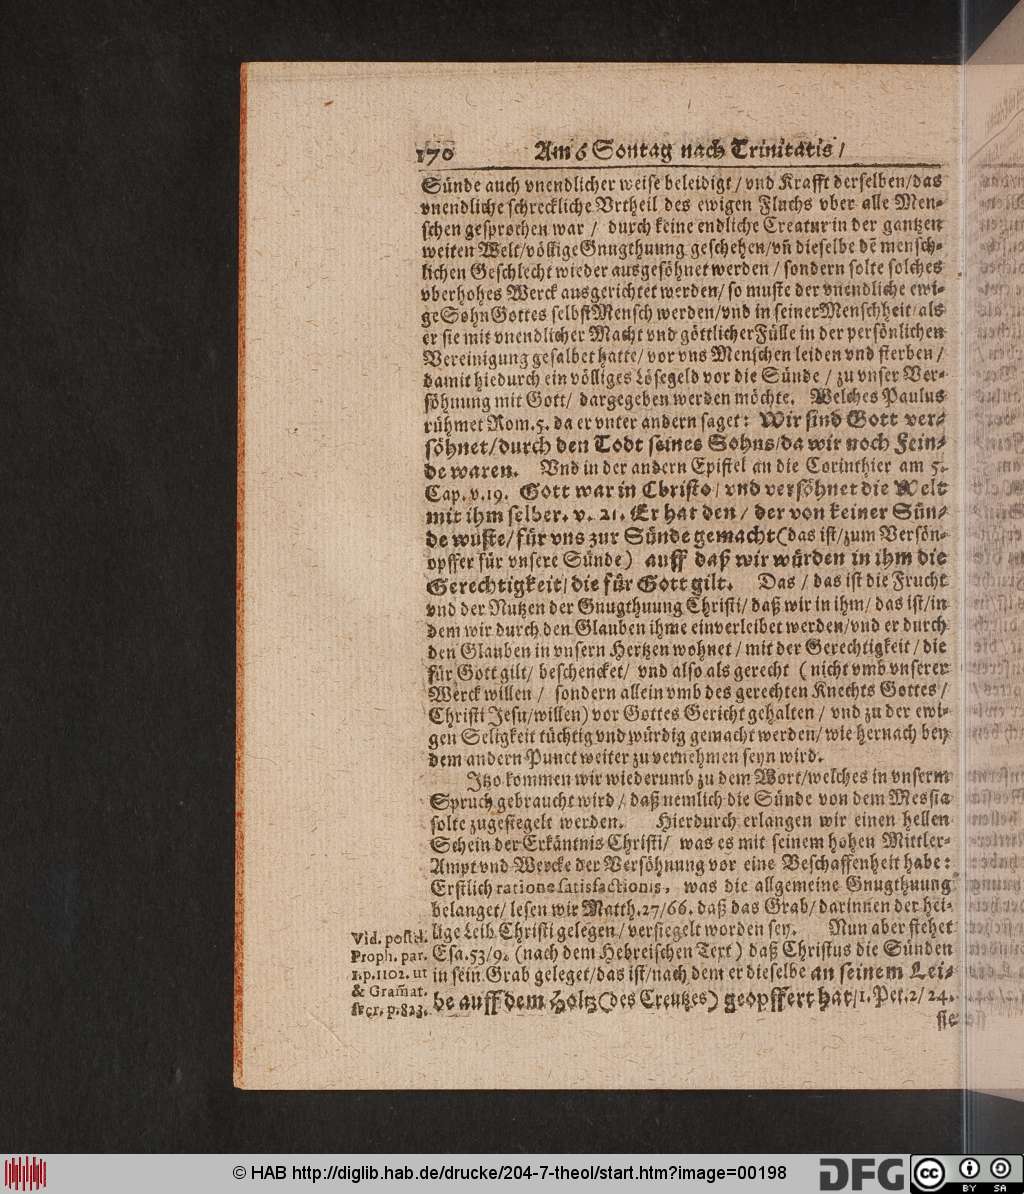 170 Am 6 Sontag nach Trinitatis /
Sünde auch vnendlicher weise beleidigt / vnd Krafft derselben/das
vnendliche schreckliche Vrtheil des ewigen Fluchs vber alle Men-
schen gesprochen war / durch keine endliche Creatur in der gantzen
weiten Welt/völlige Gnugthuung geschehen/vñ dieselbe dē mensch-
lichen Geschlecht wieder ausgesöhnet werden / sondern solte solches
vberhohes Werck ausgerichtet werden/ so muste der vnendliche ewi-
ge Sohn Gottes selbst Mensch werden/vnd in seiner Menschheit/als
er sie mit vnendlicher Macht vnd göttlicher Fülle in der persönlichen
Vereinigung gesalbet hatte/ vor vns Menschen leiden vnd sterben /
damit hiedurch ein völliges Lösegeld vor die Sünde / zu vnser Ver-
söhnung mit Gott/ dargegeben werden möchte. Welches Paulus
rühmet Rom.5. da er vnter andern saget: Wir sind Gott ver-
söhnet/durch den Todt seines Sohns/da wir noch Fein-
de waren. Vnd in der andern Epistel an die Corinthier am 5.
Cap. v.19. Gott war in Christo/ vnd versöhnet die Welt
mit ihm selber. v. 21. Er hat den / der von keiner Sün-
de wuste/ für vns zur Sünde gemacht (das ist/zum Versön-
opffer für vnsere Sünde) auff daß wir würden in ihm die
Gerechtigkeit/ die für Gott gilt. Das / das ist die Frucht
vnd der Nutzen der Gnugthuung Christi/ daß wir in ihm/ das ist/in
dem wir durch den Glauben ihme einverleibet werden/vnd er durch
den Glauben in vnsern Hertzen wohnet / mit der Gerechtigkeit / die
für Gott gilt/ beschencket/ vnd also als gerecht (nicht vmb vnserer
Werck willen / sondern allein vmb des gerechten Knechts Gottes /
Christi Jesu/willen) vor Gottes Gericht gehalten / vnd zu der ewi-
gen Seligkeit tüchtig vnd würdig gemacht werden/ wie hernach bey
dem andern Punct weiter zu vernehmen seyn wird.
Itzo kommen wir wiederumb zu dem Wort/welches in vnserm
Spruch gebraucht wird / daß nemlich die Sünde von dem Messia
solte zugesiegelt werden. Hierdurch erlangen wir einen hellen
Schein der Erkäntnis Christi/ was es mit seinem hohen Mittler-
Ampt vnd Wercke der Versöhnung vor eine Beschaffenheit habe:
Erstlich ratione satisfactionis, was die allgemeine Gnugthuung
belanget/ lesen wir Matth.27/66. daß das Grab/ darinnen der hei-
lige Leib Christi gelegen / versiegelt worden sey. Nun aber stehet
Esa.53/9. (nach dem Hebreischen Text) daß Christus die Sünden
in sein Grab geleget/das ist/nach dem er dieselbe an seinem Lei-
be auff dem Holtz (des Creutzes) geopffert hat/1. Pet.2/24.
sie
Vid. postil.
Proph. par.
1.p.1102. ut
& Gram̃at.
sacr. p.823.
© HAB http://diglib.hab.de/drucke/204-7-theol/start.htm?image=00198
DFG
cc BY SA